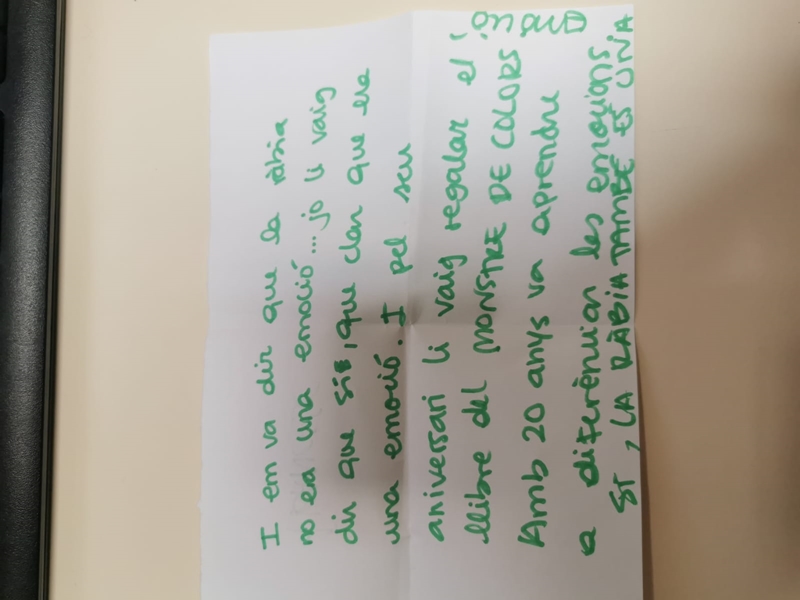 I em va dir que la ràbia
no era una emoció...jo li vaig
dir que sí, que clar que era
una emoció. I pel seu
aniversari li vaig regalar el
llibre del MONSTRE DE COLORS
Amb 20 anys va aprendre
a diferènciar les emocions
SÍ, LA RÀBIA TAMBÉ ÉS UNA